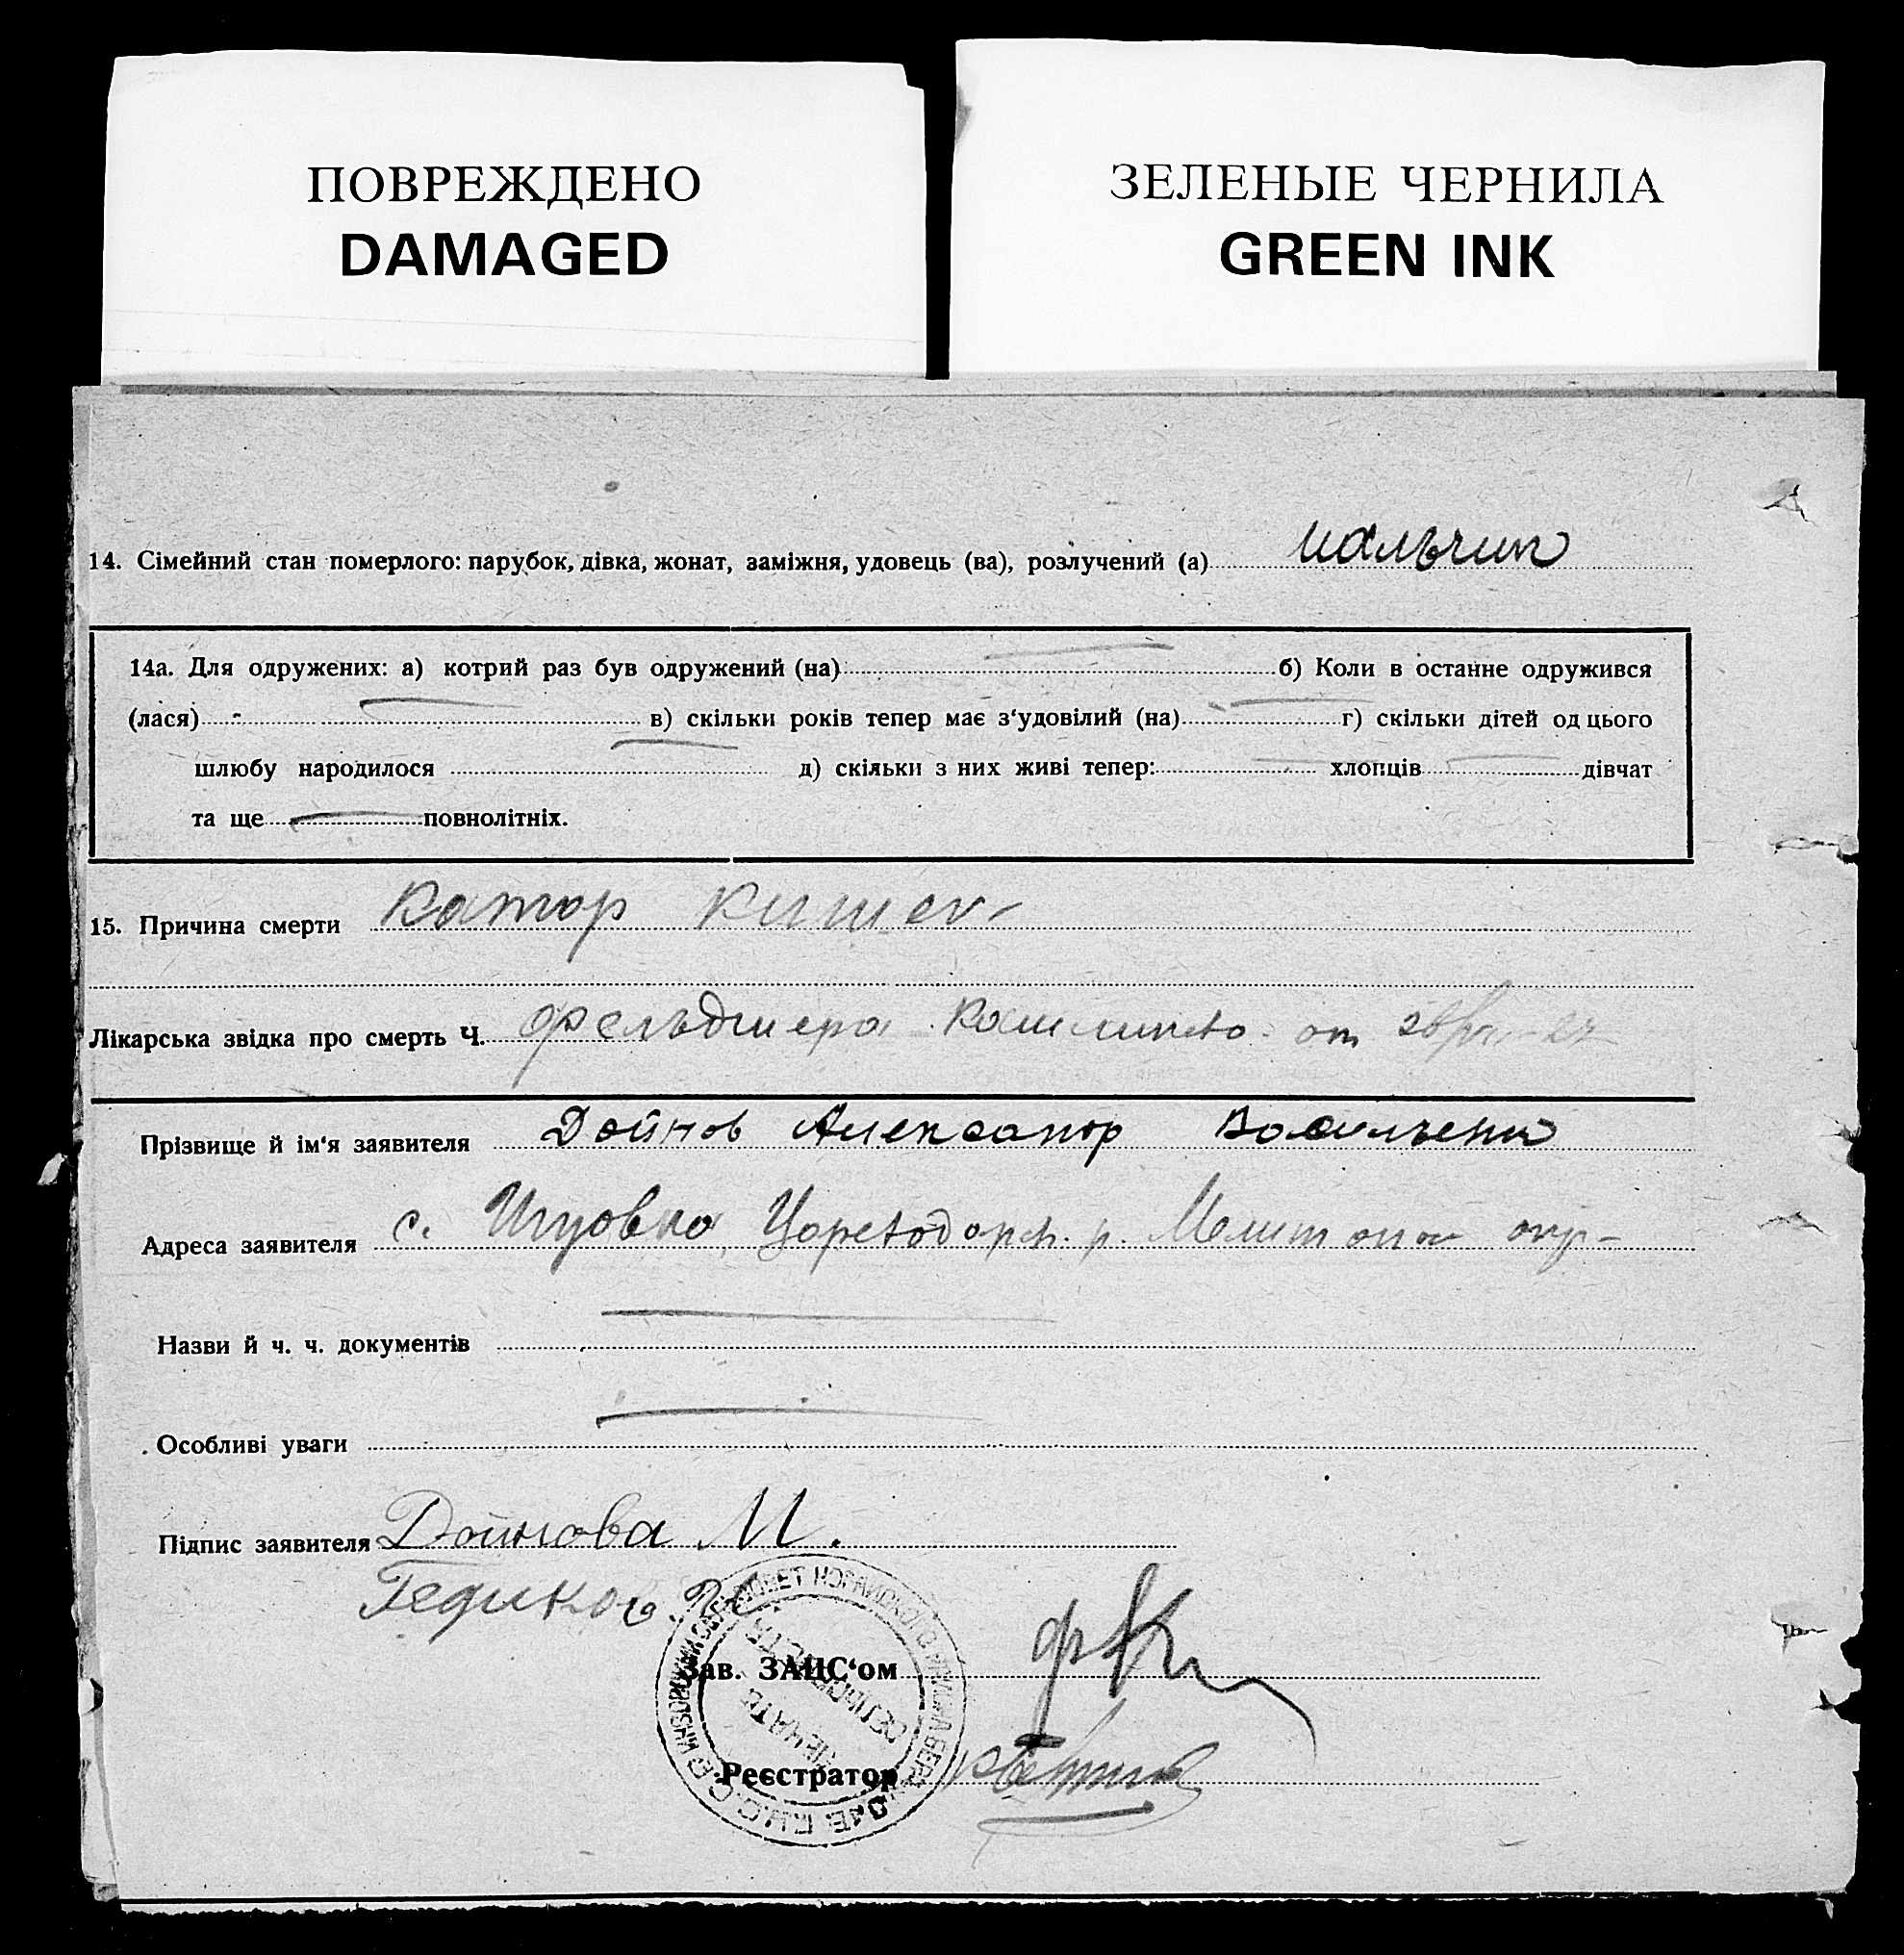 ПОВРЕЖДЕНО
DAMAGED
ЗЕЛЕНЫЕ ЧЕРНИЛА
GREEN INK
14. Сімейний стан померлого: парубок, дівка, жонат, заміжня, удовець (ва), розлучений (а) мальчик
14а. Для одружених: а) котрий раз був одружений (на) б) Коли в останне одружився
(лася) в) скільки років тепер має з‘удовілий (на) г) скільки дітей од цього
шлюбу народилося д) скільки з них живі тепер: хлопців дівчат
та ще повнолітніх.
15. Причина смерти Катар кишек
Лікарська звідка про смерть Ч. фельдшера от
Прізвище й ім‘я заявителя Дойнов Александр Васильев
Адреса заявителя с. Инзовка, Цареводарск. р. Мелитопол окр-
Назви й ч. ч. документів
Особливі уваги
Підпис заявителя Дойнова М.
Зав. ЗАЦС‘ом
Реєстратор